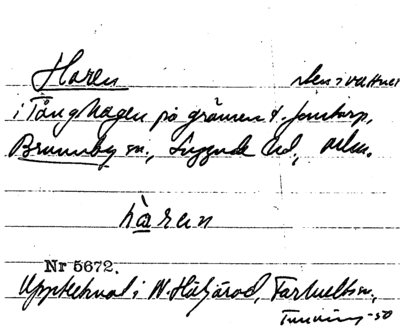 Haren sten i vattnet
i Tånghagen på gränsen t. Jonstorp,
Brunnby sn, Luggude hd, Mlm.
hàren
Nr 5672.
Upptecknad i N. Häljaröd, Farhults sn,